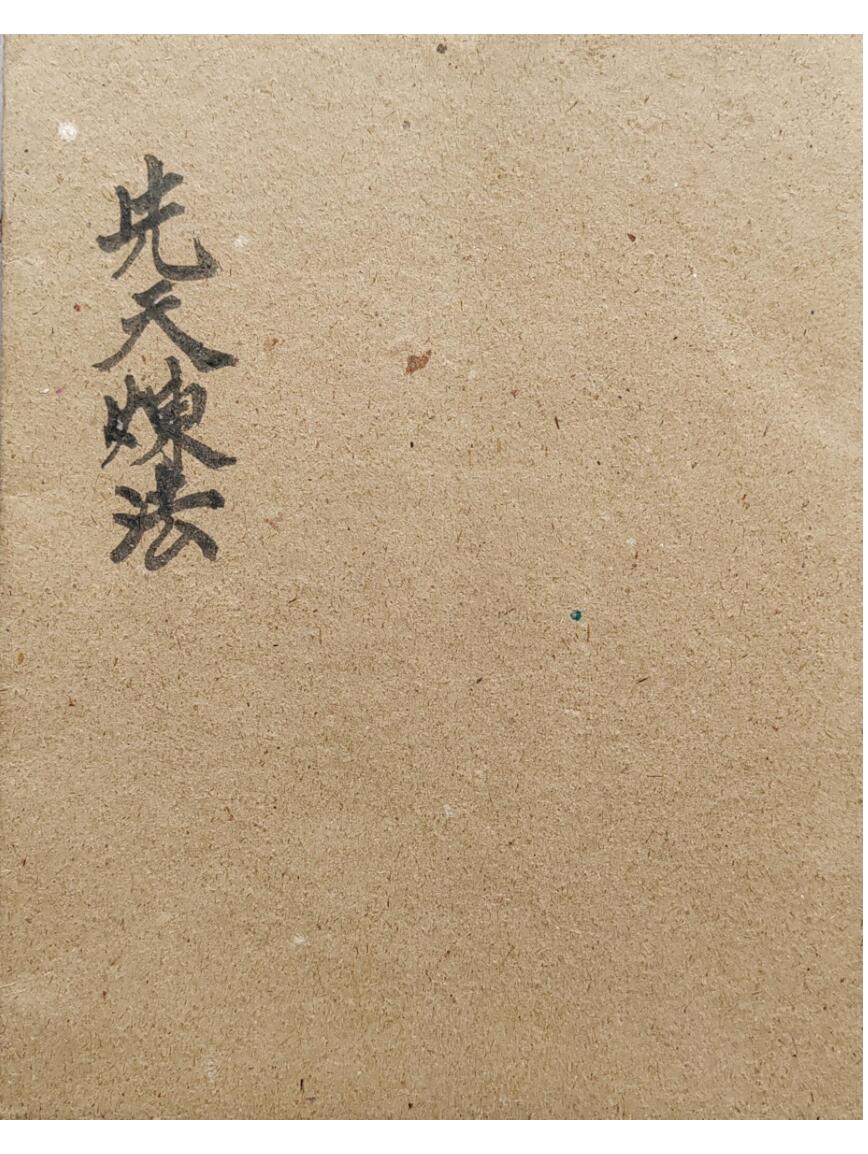 先天煉法